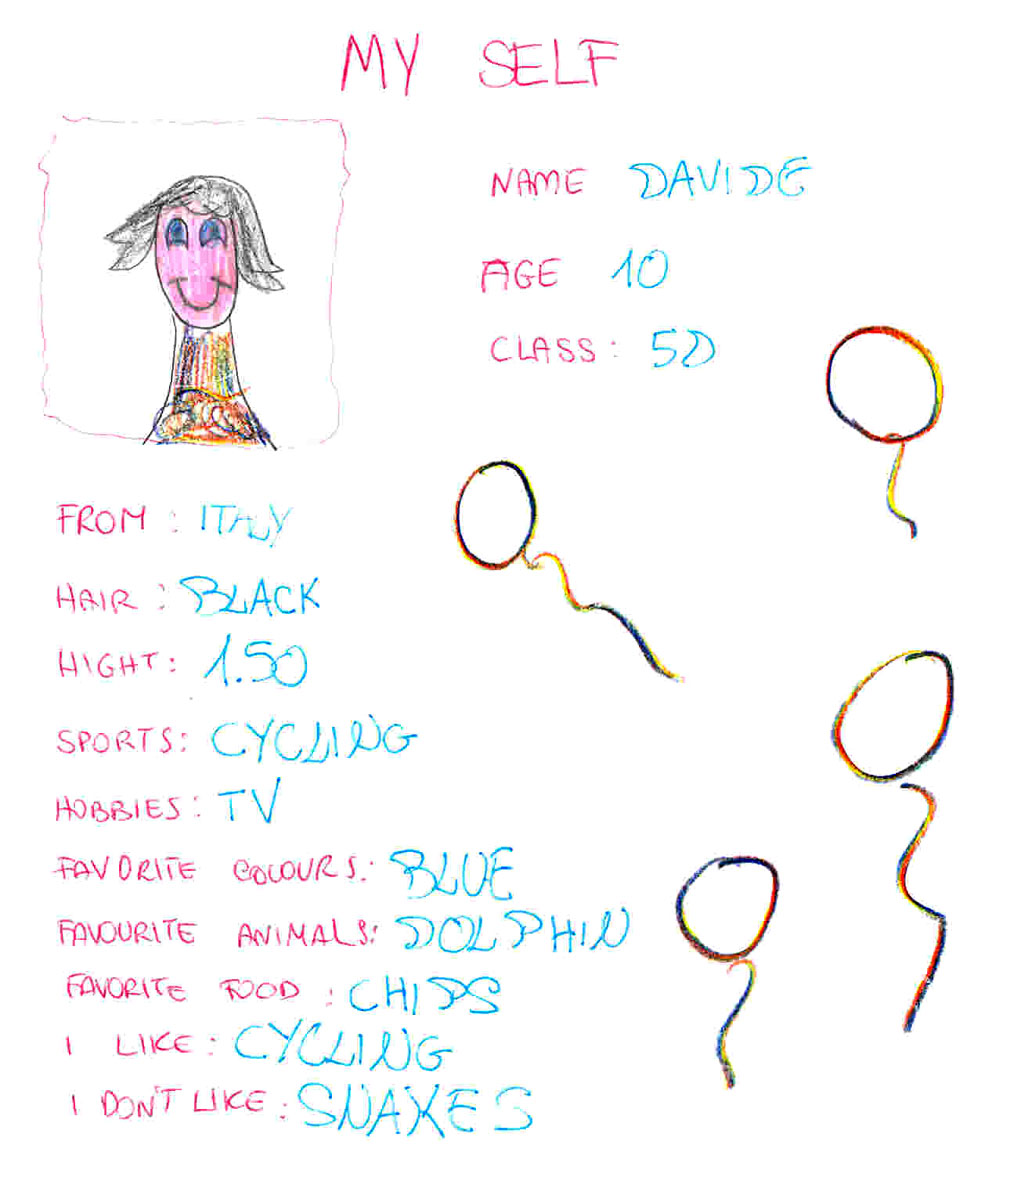 MY SELF
NAME DAVIDE
AGE 10
CLASS: 5D
FROM: ITALY
HAIR: BLACK
HIGHT: 1.50
SPORTS: CYCLING
HOBBIES: TV
FAVORITE COLOURS: BLUE
FAVOURITE ANIMALS: DOLPHIN
FAVORITE FOOD: CHIPS
I LIKE: CYCLING
I DON'T LIKE: SNAKES